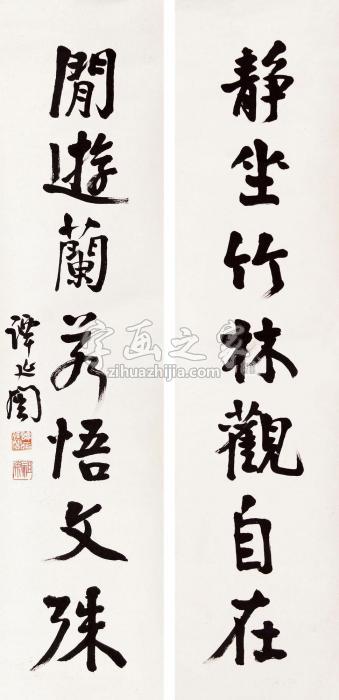 静坐竹林觀自在
閒遊蘭若悟文殊
譚延闓
字画之家
zihuazhijia.com